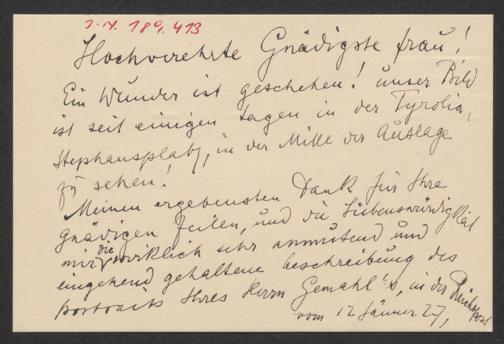 I. N. 189.413
Hochverehrte Gnädigste Frau!
Ein Wunder ist geschehen! unser Bild
ist seit einigen Tagen in der Tyrolia,
Stephansplatz, in der Mitte der Auslage
zu sehen!
Meinen ergebensten Dank für Ihre
gnädigen Zeilen, und die Liebenswürdigkeit
mir die wirklich sehr anmutend und
eingehend gehaltene Beschreibung des
Portraits Ihres Herrn Gemahl's, in der Reichspost
vom 12 Jänner 27,